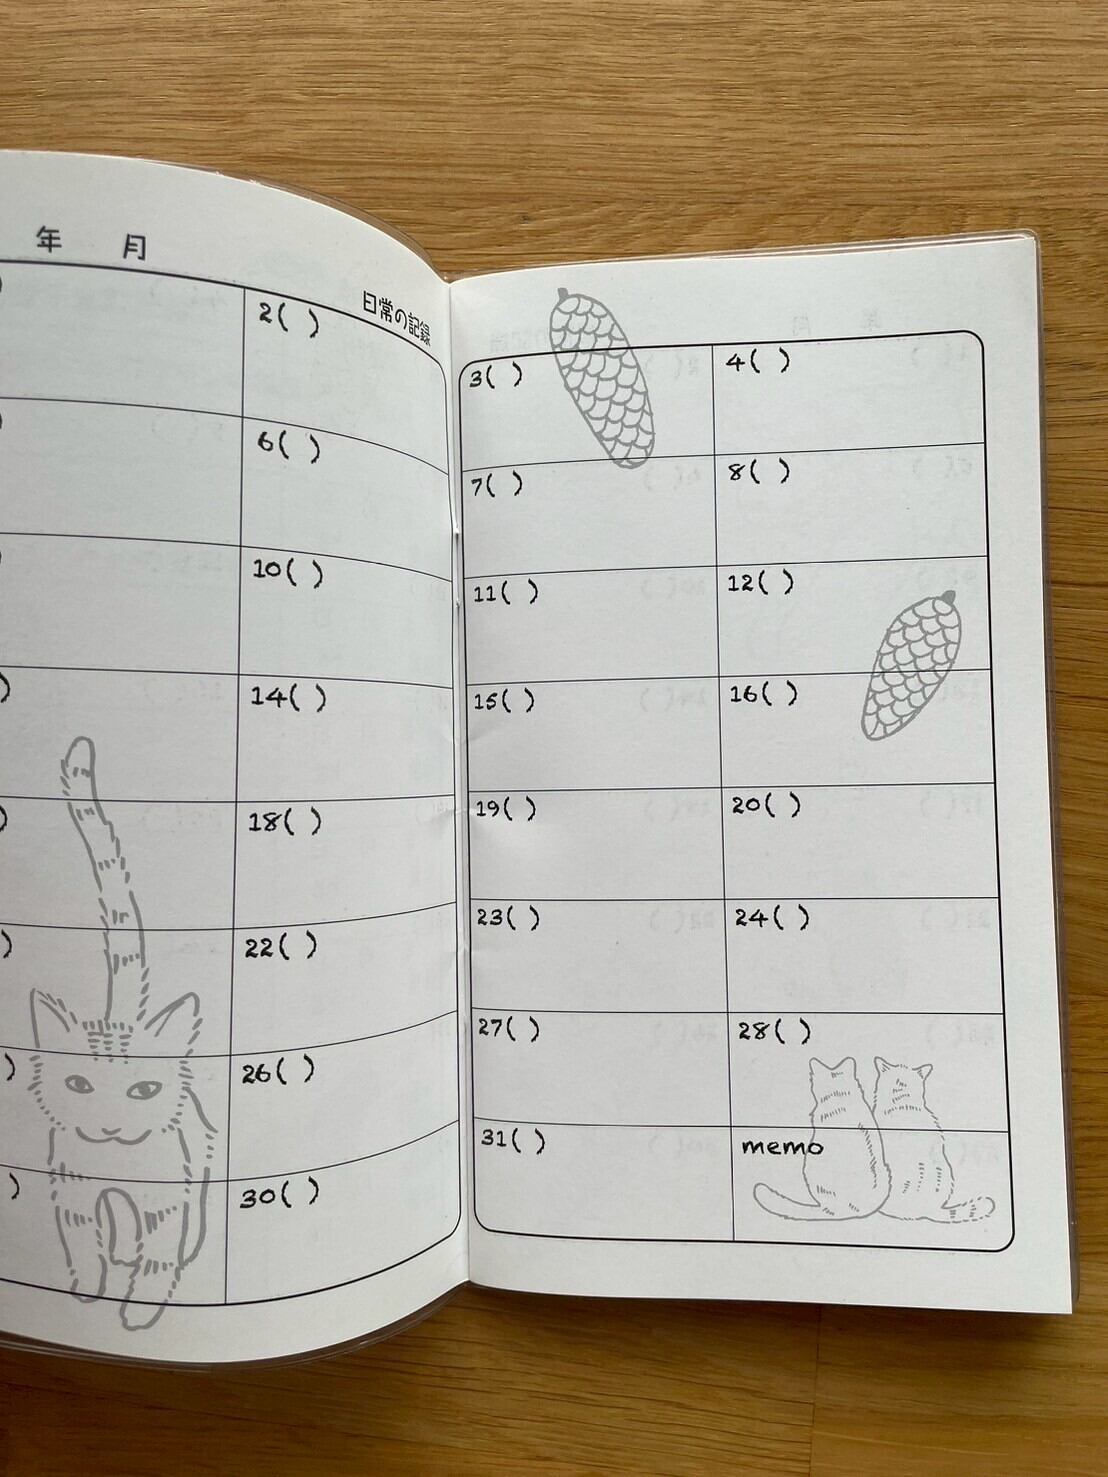 年 月
日常の記録
2( )
6( )
10( )
14( )
18( )
22( )
26( )
30( )
3( )
4( )
7( )
8( )
11( )
12( )
15( )
16( )
19( )
20( )
23( )
24( )
27( )
28( )
31( )
memo